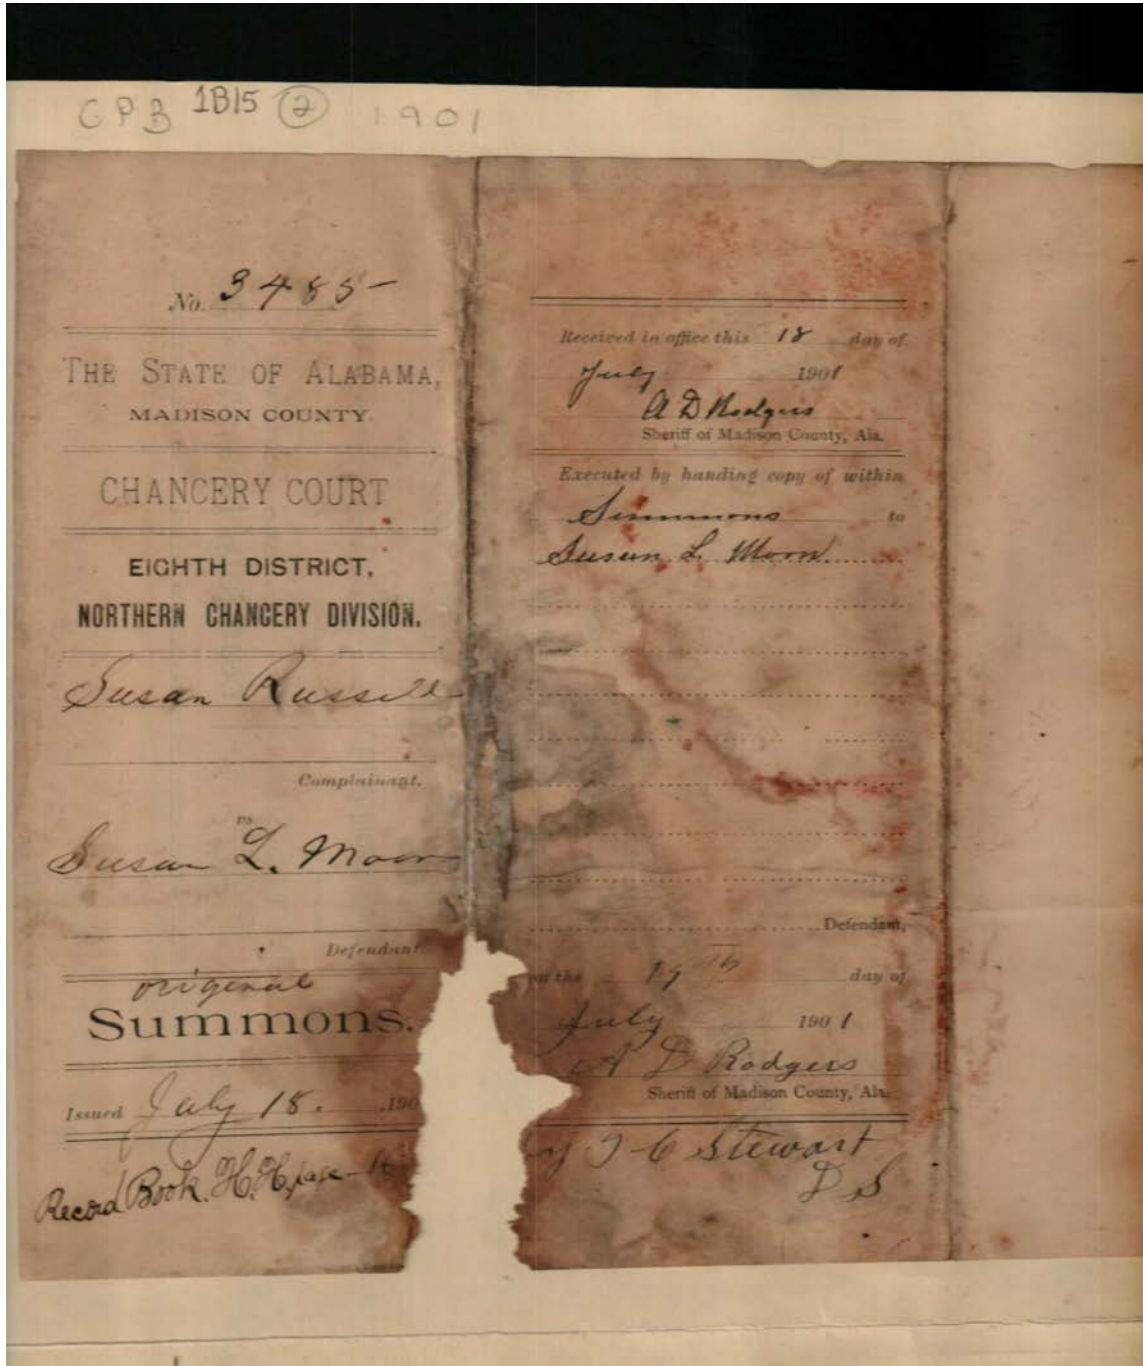 CPB 1B15 2 1901
No. 3485
THE STATE OF ALABAMA,
MADISON COUNTY.
CHANCERY COURT
EIGHTH DISTRICT,
NORTHERN CHANCERY DIVISION.
Susan Russell
Complainant.
vs
Susan L. Moor
Defendant.
original
Summons.
Issued July 18. 190
Record Book, H.H, page
Received in office this 18 day of
July 1901
A D Rodgers
Sheriff of Madison County, Ala.
Executed by handing copy of within
Summons to
Susan L. Moor
Defendant,
on the 19th day of
July 1901
A D Rodgers
Sheriff of Madison County, Ala.
Stewart
D S